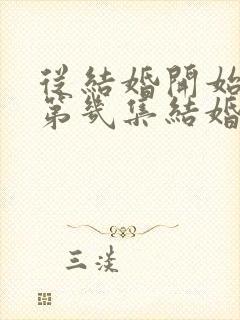 從結婚開始
第幾集結婚
三淡